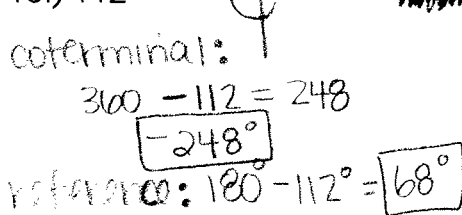 112
coterminal:
360 - 112 = 248
-248°
reference: 180° - 112° = 68°